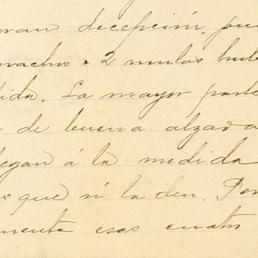 gran decepción, pue
macho . 2 mulas hub
dida. La mayor parte
de buena alzada
legan á la medida
s que si la den. Por
mente esas cuatro